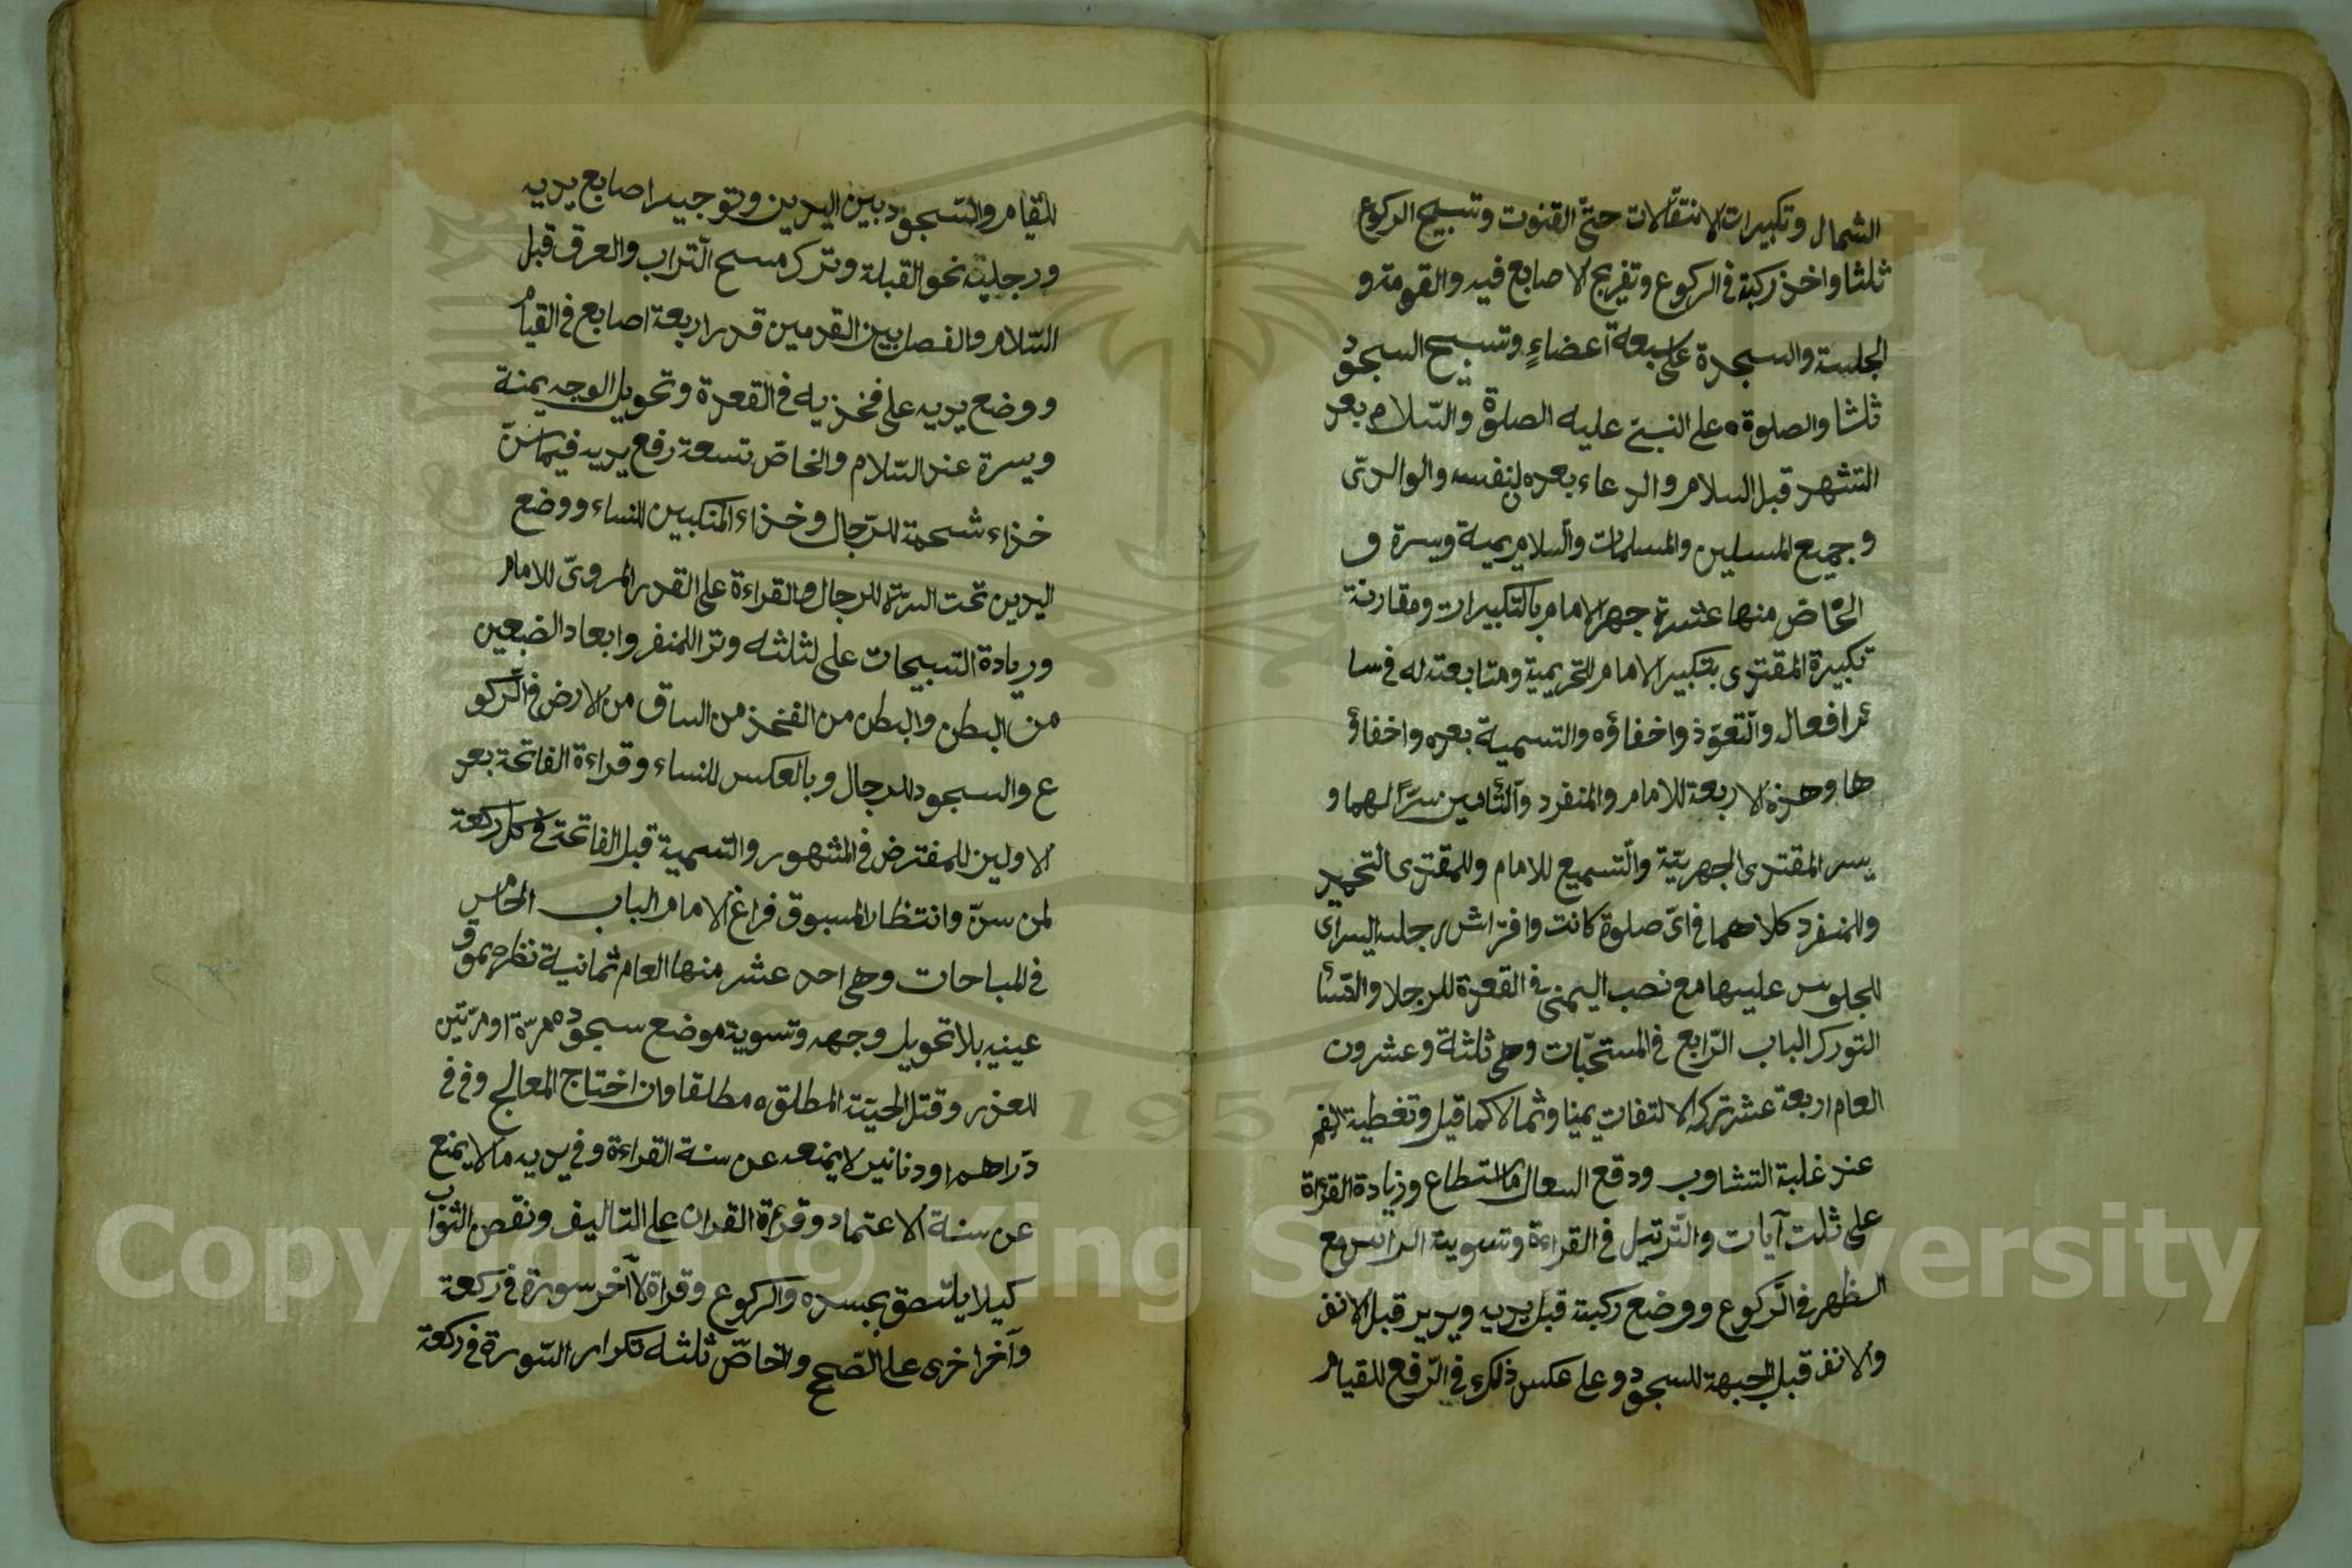 الشمال وتكبيرات الانتقالات حتى القنوت وتسبيح الركوع
ثلثا واخذ ركبة في الركوع وتفريج الاصابع فيه والقومة و
الجلسة والسجدة على سبعة اعضاءٍ وتسبيح السجود
ثلثا والصلوة على النبي عليه الصلوة والسّلام بعد
التشهد قبل السلام والدعاء بعده لنفسه والوالدى
وجميع المسلين والمسلمات والسلام يمية ويسرة و
الخاصّ منها عشرة جهر الامام بالتكبيرات ومقارنة
تكبيرة المقتدى بتكبير الامام للتحريمية ومتابعته له في سا
ئر افعال والتعوّذ واخفاؤه والتسمية بعده واخفاؤ
ها وهذه الاربعة للامام والمنفرد والتأمين سرّاً لهما و
يسر المقتدى الجهريّة والتّسميع للامام وللمقتدى التحميد
والمنفرد كلاهما في اىّ صلوة كانت وافتراش رجله اليسراى
للجلوس عليها مع نصب اليمنى في القعدة للرجلا والنسأ
التورك الباب الرّابع في المستحبّات وهى ثلثة وعشرون
العام اربعة عشر تركه الالتفات يمينا وشمالا كما قيل وتغطية الفم
عند غلبة التشاوب ودفع السعال ما استطاع وزيادة القراة
على ثلث آيات والتّرتيل في القراءة وتسوية الراس مع
الظهر في الرّكوع ووضع ركبة قبل يديه ويديه قبل الانف
والانف قبل الجبهة للسجود وعلى عكس ذلك في الرّفع للقيام
للقيام والسّجود بين اليدين وتوجيه اصابع يديه
ورجليه نحو القبلة وترك مسح التراب والعرق قبل
السّلام والفصل بين القدمين قدر اربعة اصابع في القيام
ووضع يديه على فخذيه في القعدة وتحويل الوجه يمنة
ويسرة عند السّلام والخاصّ تسعة رفع يديه فيما سنّ
خذاء شحمة للرّجال وخذاء المنكبين للنساء ووضع
اليدين تحت السرّة للرجال والقراءة على القدر المروىّ للامام
وريادة التسبيحات على لثلثه وترا للمنفر وابعاد الضبعين
من البطن والبطن من الفخذ من الساق من الارض في الرّكو
ع والسجود للرجال وبالعكس للنساء وقراءة الفاتحة بعد
الاولين للمفترض في المشهور والتسمية قبل الفاتحة في كل ركعة
لمن سنّ وانتظار المسبوق فراغ الامام الباب الخامس
في المباحات وهى احد عشر منها العام ثمانية نظره بموق
عينيه بلا تحويل وجهه وتسوية موضع سجوده مرّة او مرّتين
للعذر وقتل الحيّة المطلقه مطلقا وان اختاج المعالج وفى فى
دراهم او دنانير لا يمنعه عن سنة القراءة وفي يديه ما لا يمنع
عن سنة الاعتماد وقرأة القران على التاليف ونقص الثواب
كيلا يلتصق بجسده والركوع وقراة لآخر سورة في ركعة
وآخر اخرى على الصّحيح والخاصّ ثلثه تكرار السّورة في ركعة
Copyright © King Saud University
1957